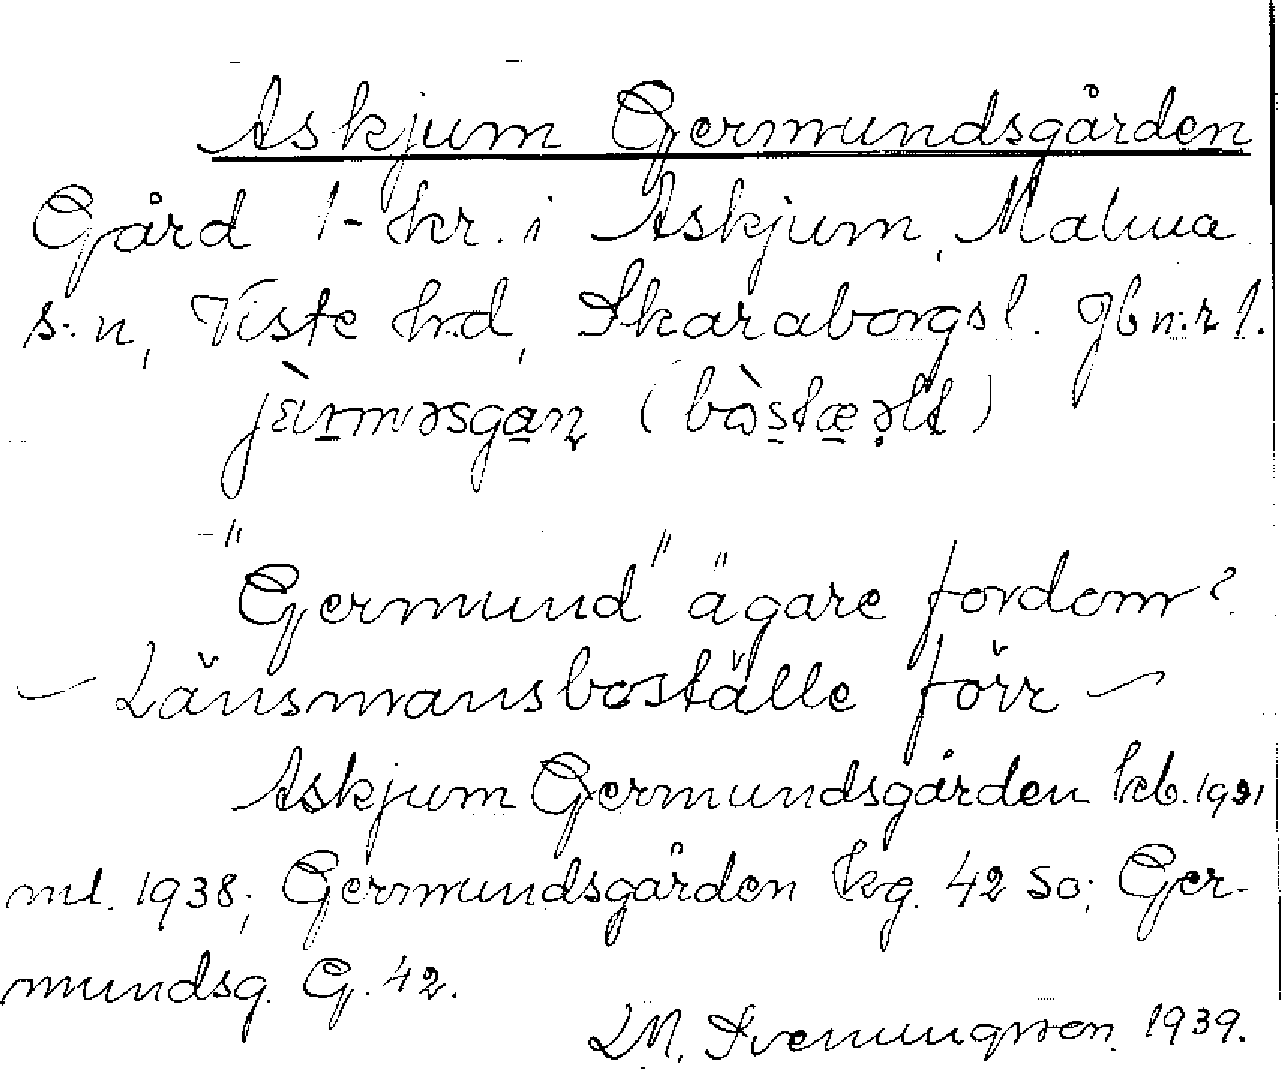 Askjum Germundsgården
Gård 1-hr. i Askjum, Malma
s:n, Viste h:d, Skaraborgs l. Jb n:r 1.
"Germund" ägare fordom?
— Länsmansboställe förr —
Askjum Germundsgården kb. 1921
ml. 1938; Germundsgården kg. 42 SO; Ger-
mundsg. G. 42.
L.M. Svenungsson 1939.